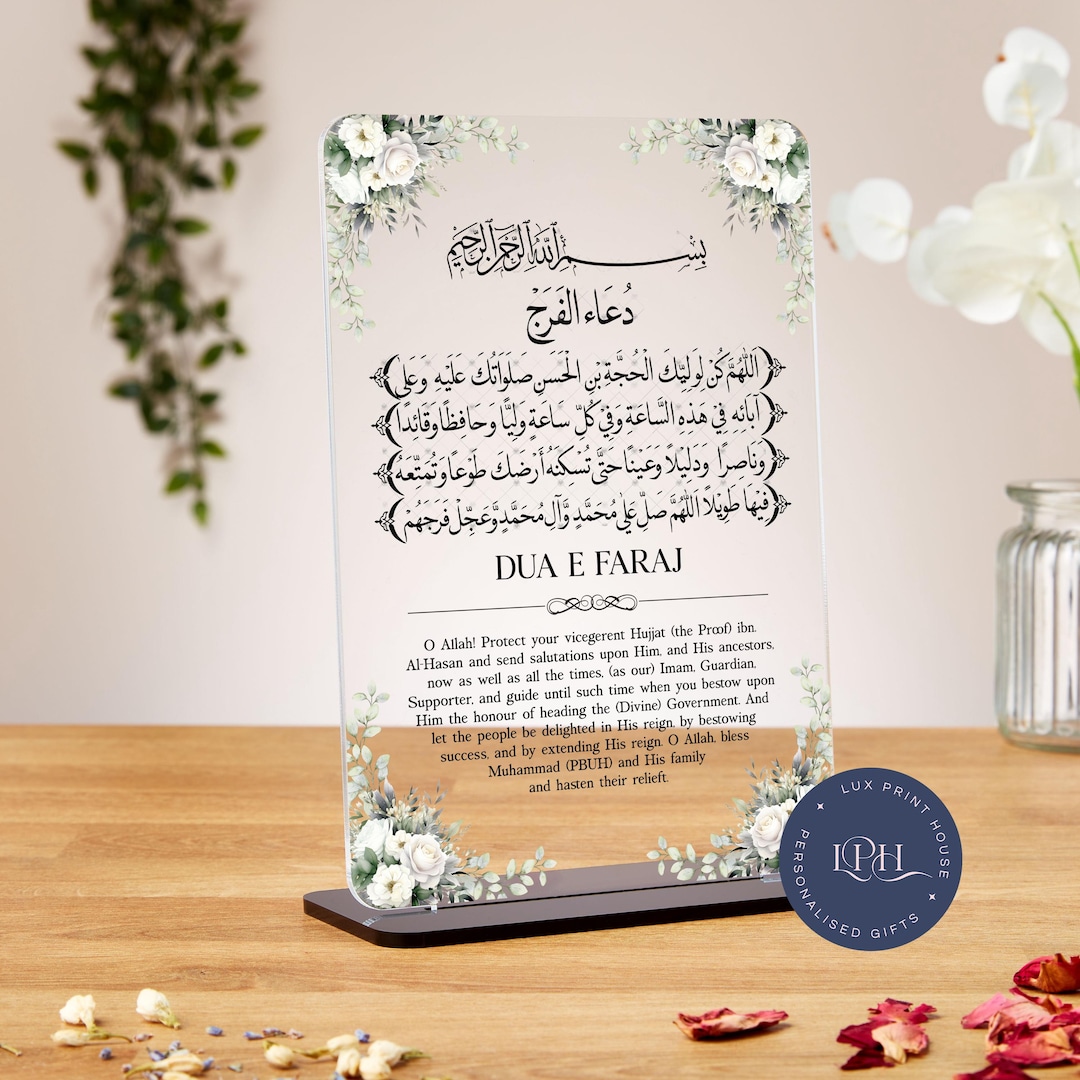 بِسْمِ ٱللَّهِ ٱلرَّحْمَٰنِ ٱلرَّحِيمِ
دُعَاء الفَرَجْ
اَللّٰهُمَّ كُنْ لِوَلِيِّكَ الْحُجَّةِ بْنِ الْحَسَنِ صَلَوَاتُكَ عَلَيْهِ وَعَلَى
آبَائِهِ فِي هَذِهِ السَّاعَةِ وَفِي كُلِّ سَاعَةٍ وَلِيًّا وَحَافِظًا وَقَائِدًا
وَنَاصِرًا وَدَلِيْلًا وَعَيْنًا حَتَّى تُسْكِنَهُ أَرْضَكَ طَوْعًا وَتُمَتِّعَهُ
فِيْهَا طَوِيْلًا اَللّٰهُمَّ صَلِّ عَلٰى مُحَمَّدٍ وَّآلِ مُحَمَّدٍ وَّعَجِّلْ فَرَجَهُمْ
DUA E FARAJ
O Allah! Protect your vicegerent Hujjat (the Proof) ibn.
Al-Hasan and send salutations upon Him, and His ancestors,
now as well as all the times, (as our) Imam, Guardian,
Supporter, and guide until such time when you bestow upon
Him the honour of heading the (Divine) Government. And
let the people be delighted in His reign, by bestowing
success, and by extending His reign. O Allah, bless
Muhammad (PBUH) and His family
and hasten their relieft.
LUX PRINT HOUSE
LPH
PERSONALISED GIFTS